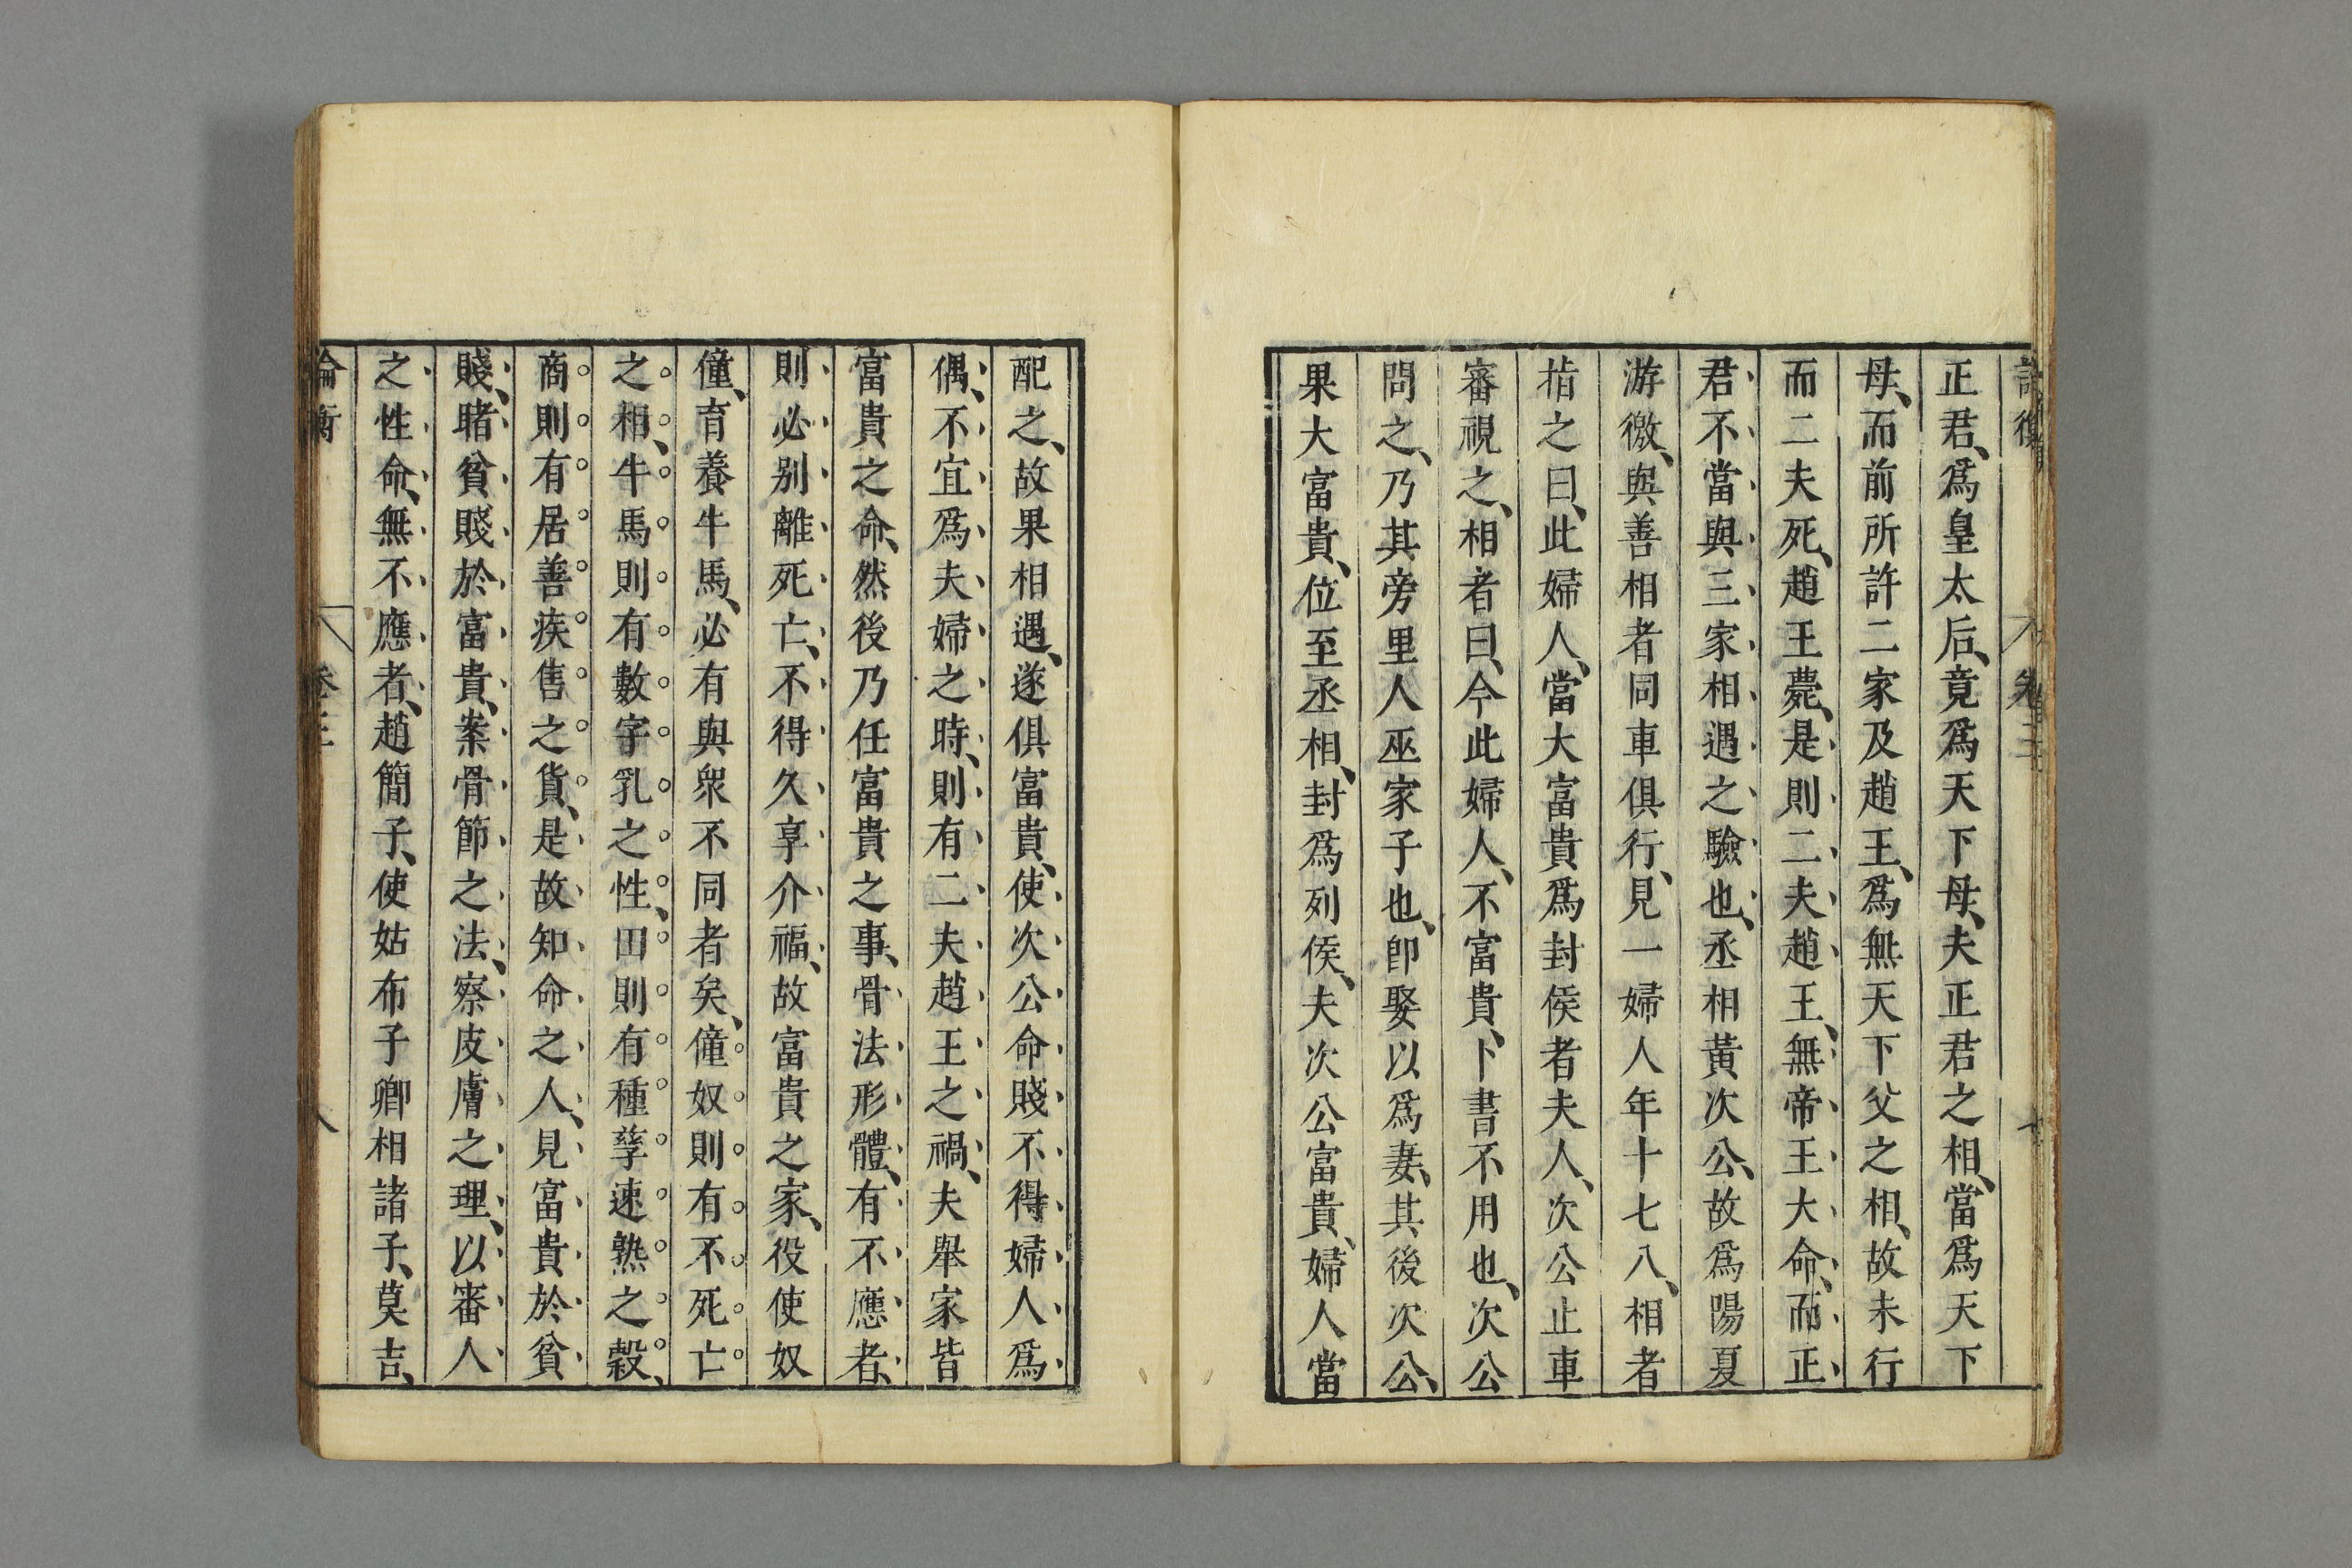 正君、爲皇太后、竟爲天下母、夫正君之相、當爲天下
母、而前所許二家及趙王、爲無天下父之相、故未行
而二夫死、趙王薨、是則二夫趙王、無帝王大命、而正
君不當與三家相遇之驗也、丞相黃次公、故爲陽夏
游徼、與善相者同車俱行、見一婦人年十七八、相者
指之曰、此婦人、當大富貴爲封侯者夫人、次公止車
審視之、相者曰、今此婦人、不富貴、卜書不用也、次公
問之、乃其旁里人巫家子也、卽娶以爲妻、其後次公、
果大富貴、位至丞相、封爲列侯、夫次公富貴、婦人當
配之、故果相遇、遂俱富貴、使次公命賤不得婦人爲
偶、不宜爲夫婦之時、則有二夫趙王之禍、夫舉家皆
富貴之命、然後乃任富貴之事、骨法形體、有不應者、
則必别離死亡、不得久享介福、故富貴之家、役使奴
僮、育養牛馬、必有與衆不同者矣、僮奴則有不死亡
之相、牛馬則有數字乳之性、田則有種孳速熟之穀、
商則有居善疾售之貨、是故知命之人、見富貴於貧
賤、睹貧賤於富貴、案骨節之法、察皮膚之理、以審人
之性命、無不應者、趙簡子、使姑布子卿相諸子、莫吉、
論衡 卷三 八